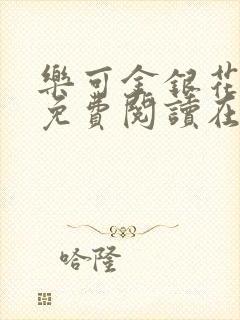 樂可金銀花
免費閱讀在
哈隆